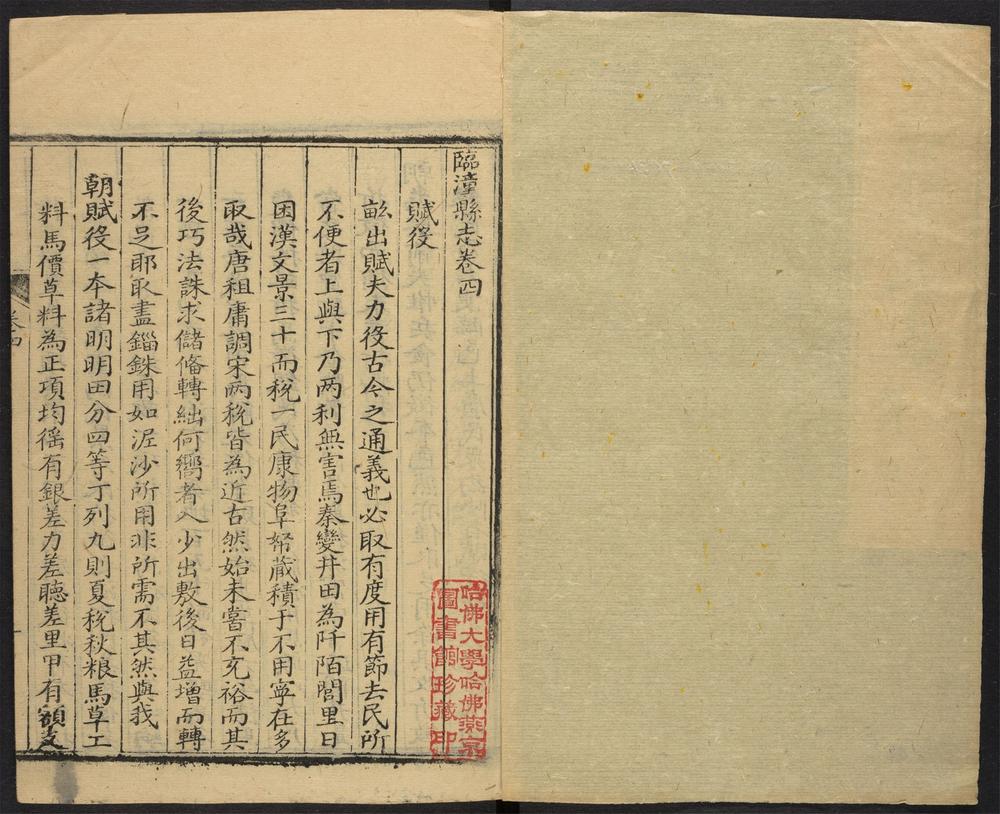 臨潼縣志卷四
賦役
畝出賦夫力役古今之通義也必取有度用有節去民所
不便者上與下乃两利無害焉秦變井田為阡陌閭里日
困漢文景三十而稅一民康物阜帑蔵積于不用寧在多
取哉唐租庸調宋两稅皆為近古然始未嘗不充裕而其
後巧法誅求儲偹轉絀何嚮者入少出敷後日益增而轉
不足耶取盡錙銖用如泥沙所用非所需不其然與我
朝賦役一本諸明明田分四等丁列九則夏稅秋粮馬草工
料馬價草料為正項均徭有銀差力差聽差里甲有額支
卷四
哈佛大學哈佛燕京
圖書館珍藏印